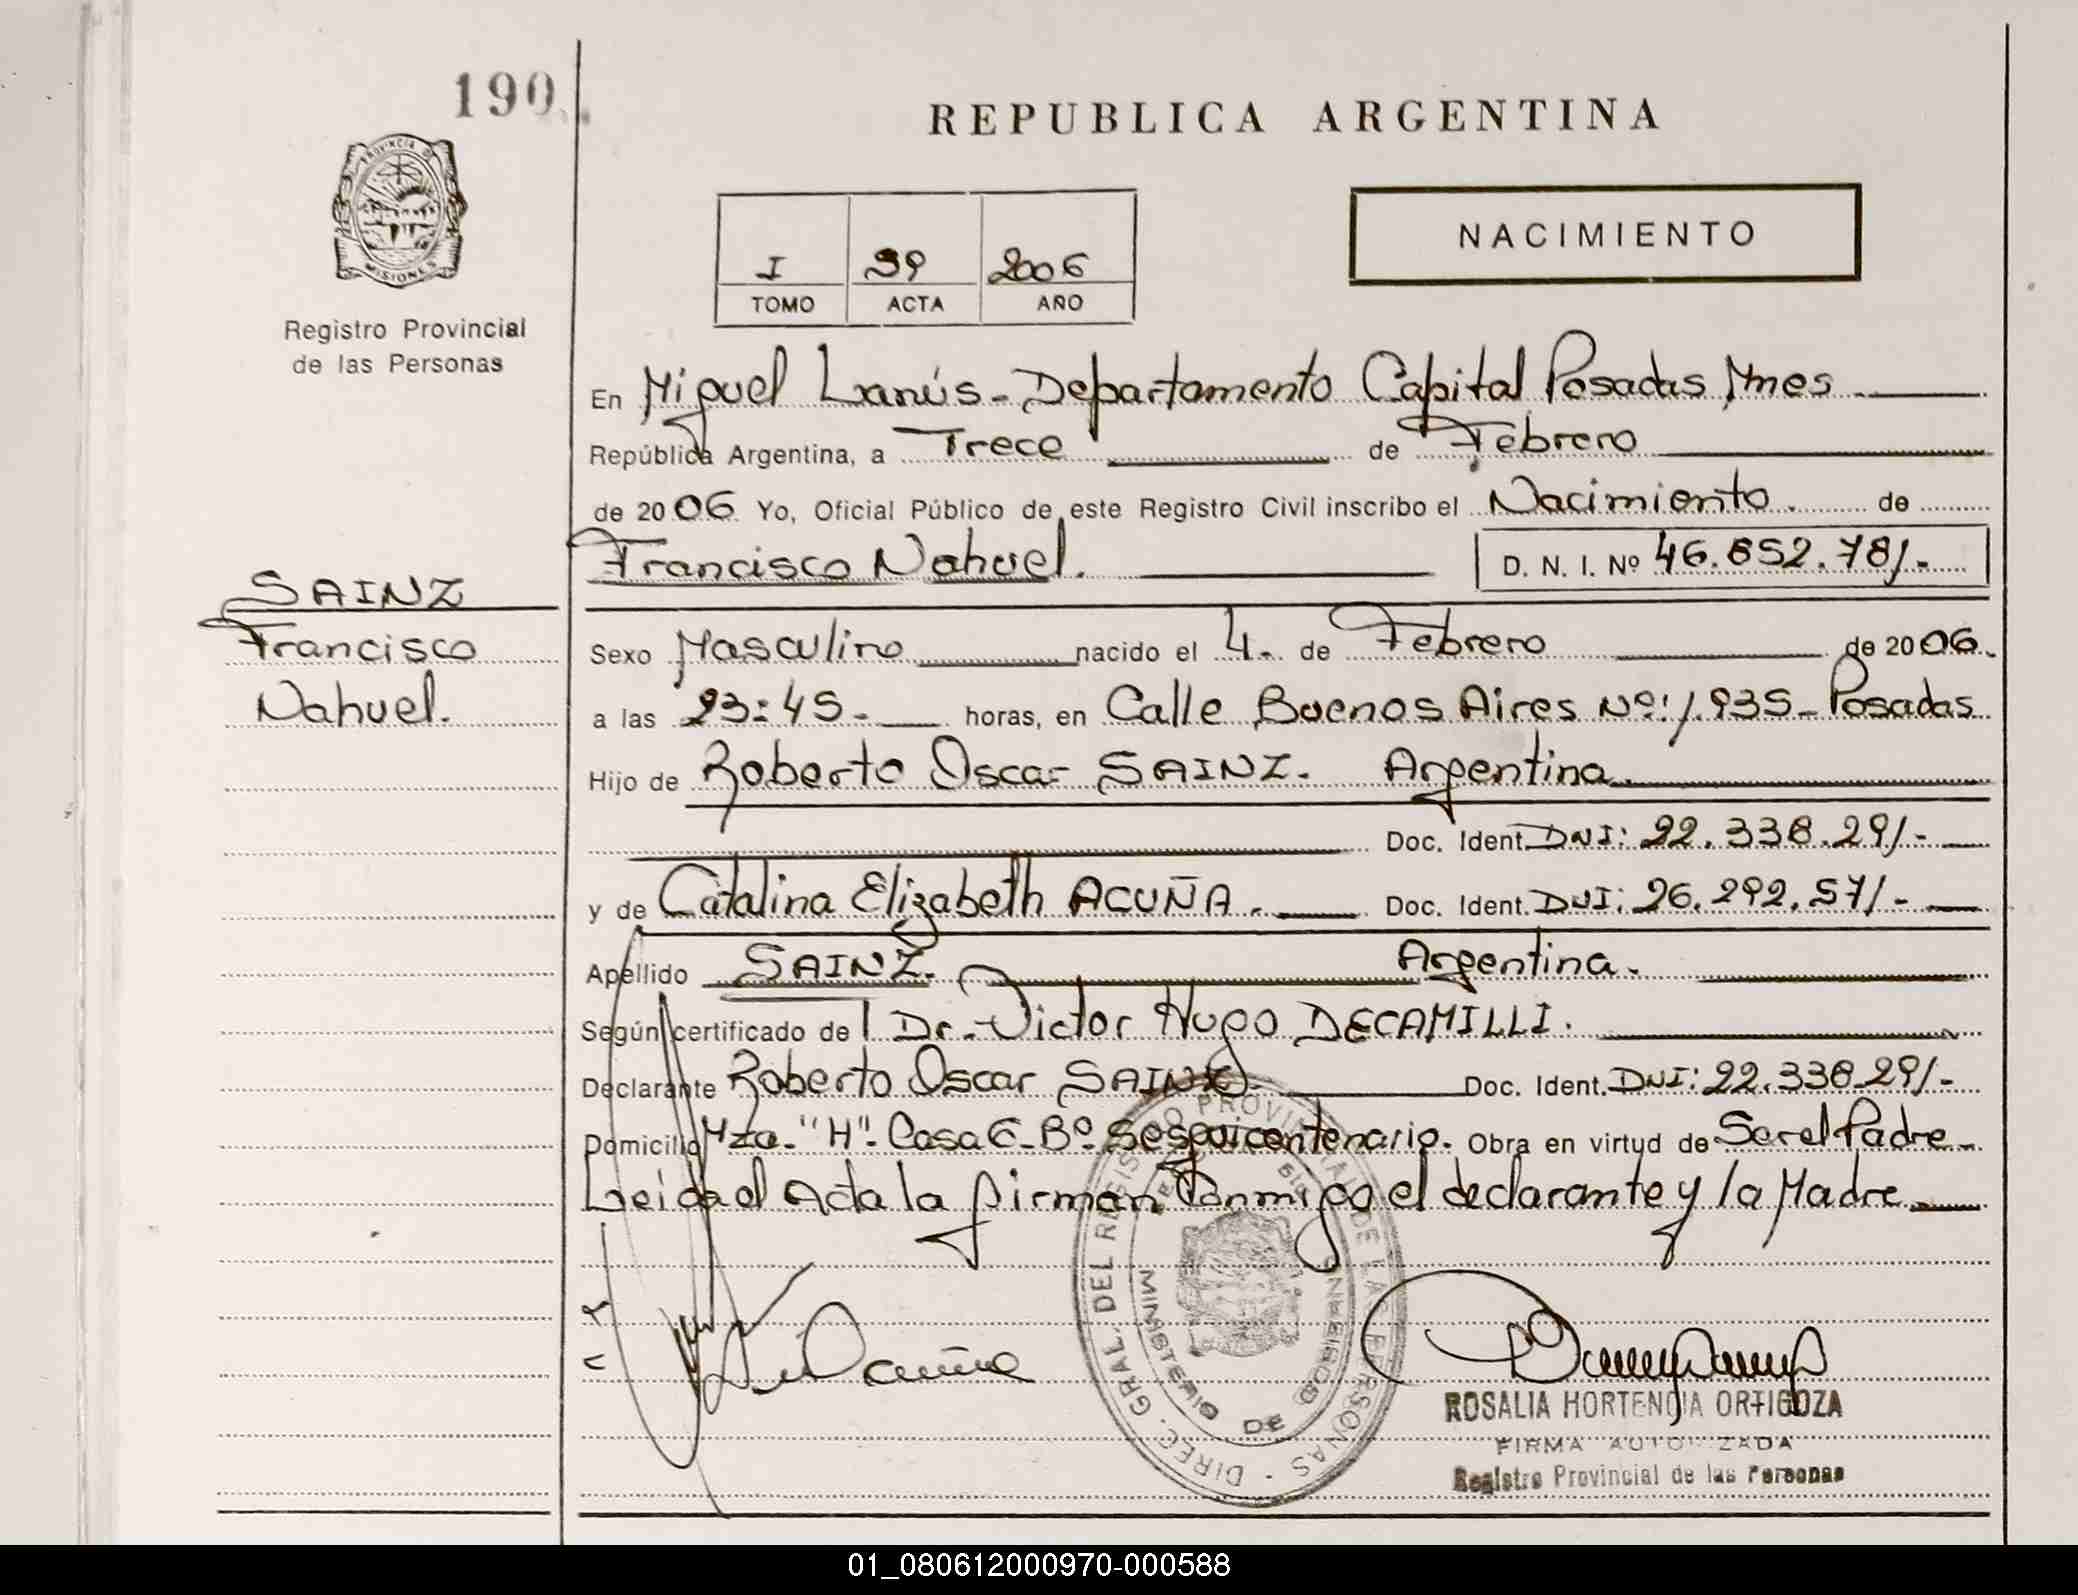 190
REPUBLICA ARGENTINA
PROVINCIA D
MISIONES
Registro Provincial
de las Personas
I 99 2006
TOMO ACTA AÑO
NACIMIENTO
En Miguel Lanús - Departamento Capital Posadas Mnes
República Argentina, a Trece de Febrero
de 2006 Yo, Oficial Público de este Registro Civil inscribo el Nacimiento de
Francisco Nahuel. D. N. I. Nº 46.852.781.-
SAINZ
Francisco
Nahuel.
Sexo Masculino nacido el 4. de Febrero de 2006.
a las 23:45.- horas, en Calle Buenos Aires Nº: 1.935 - Posadas
Hijo de Roberto Oscar SAINZ. Argentina.
Doc. Ident. DNI: 22.338.291.-
y de Catalina Elizabeth ACUÑA. Doc. Ident. DNI: 26.292.571.-
Apellido SAINZ. Argentina.
Según certificado del Dr. Victor Hugo DECAMILLI.
Declarante Roberto Oscar SAINZ. Doc. Ident. DNI: 22.338.291.-
Domicilio Mza. "H". Casa 6 - Bº Sesquicentenario. Obra en virtud de Ser el Padre
Leida el Acta la firman Conmigo el declarante y la Madre
DIREC. GRAL. DEL REGISTRO PROVINCIAL DE LAS PERSONAS
MINISTERIO DE GOBIERNO
ROSALIA HORTENCIA ORTIGOZA
FIRMA AUTORIZADA
Registro Provincial de las Personas
01_080612000970-000588